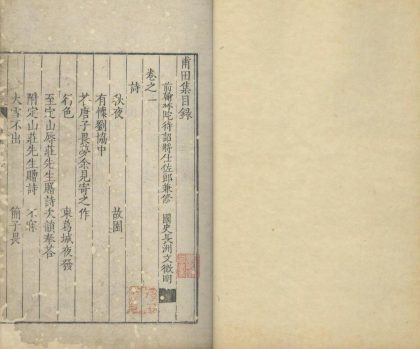 甫田集目錄
前翰林院待詔將仕佐郎兼修 國史長洲文徵明
卷之一
詩
秋夜 故園
有懷劉協中
子畏見寄之作
行色 東葛城夜發
至定山辱莊先生贈詩次韻奉荅
附定山莊先生贈詩 不寐
大雪不出 簡子畏